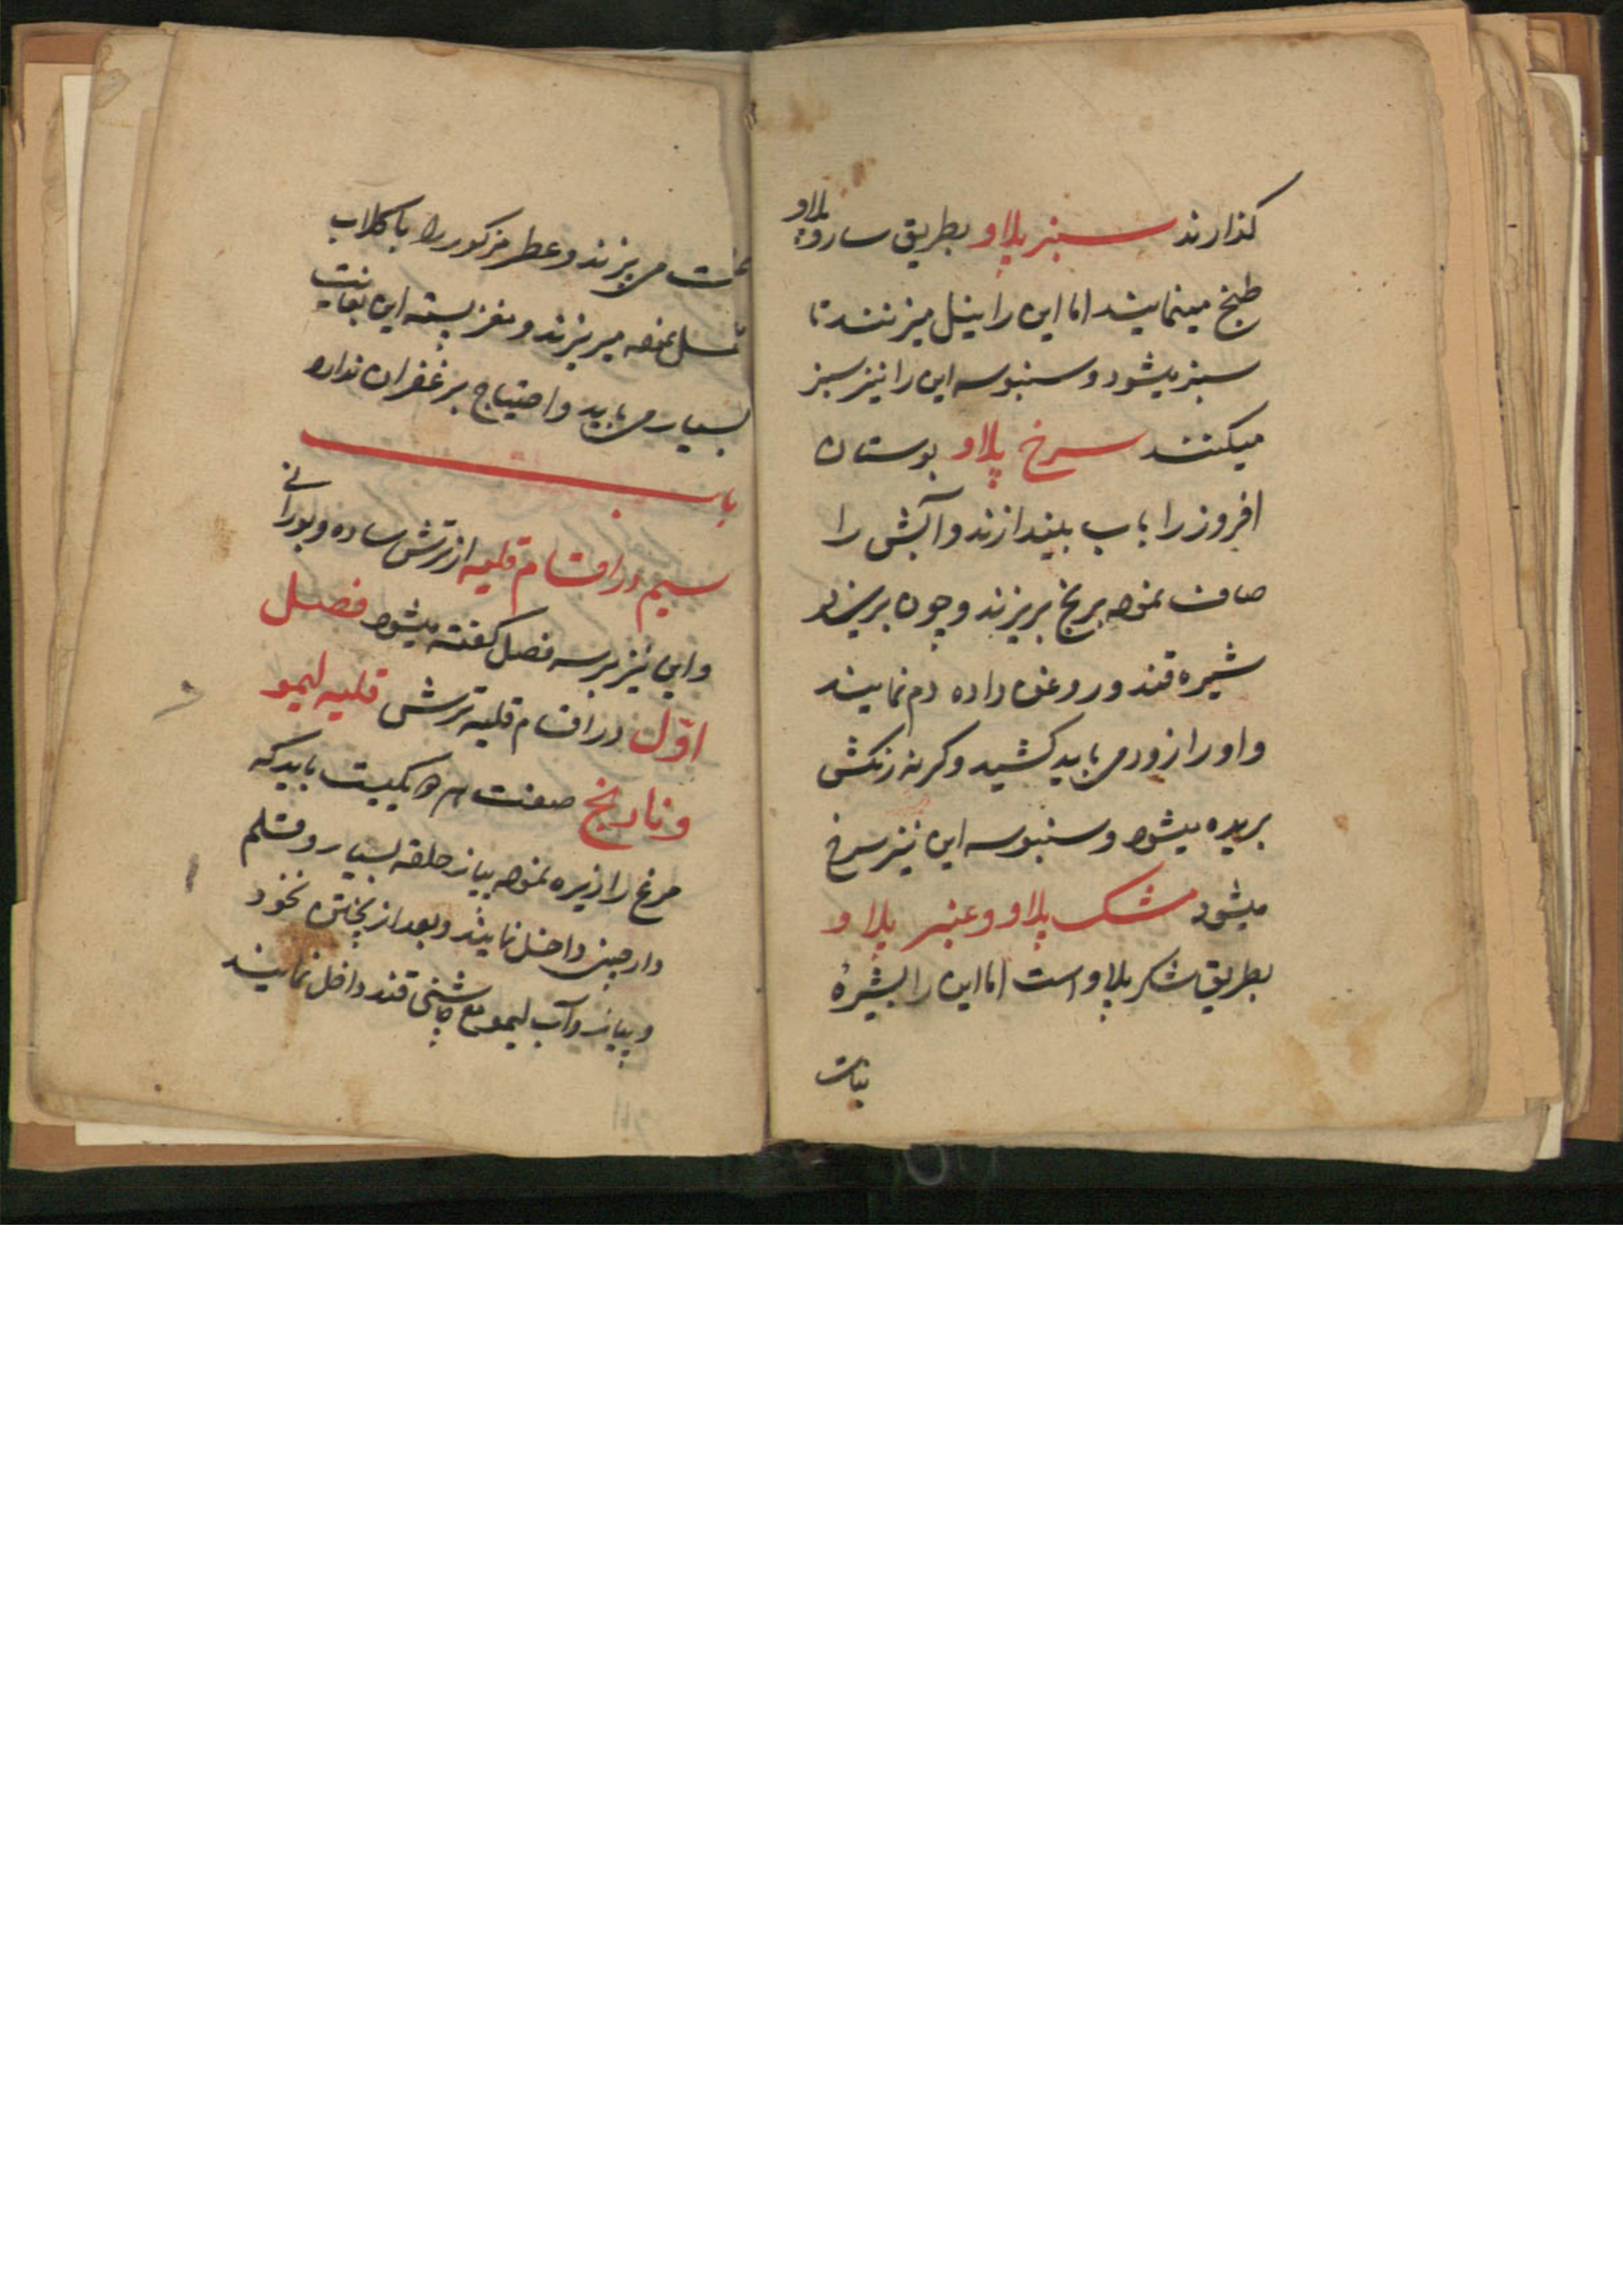 کذارند سبز پلاو بطریق سارو پلاو
طبخ مینمایند اما این را بنیل میزنند تا
سبز میشود و سنبوسه این را نیز سبز
میکنند سرخ پلاو بوستان
افروز را بآب بیندازند و آبش را
صاف نموده بر برنج بریزند و چون بریزند
شیره قند و روغن داده دم نمایند
و او را زود می باید کشید و کرنه رنکش
بریده میشود و سنبوسه این نیز سرخ
میشود مشک پلاو و عنبر پلاو
بطریق شکر پلاو است اما این را بشیرهٔ
نبات
می پزند و عطر مذکور را با کلاب
نموده میریزند و مغز پسته این بغایت
بسیار می باید و احتیاج بزعفران ندارد
باب
سیم در اقسام قلیه از ترش ساده و بورانی
و این نیز بر سه فصل کفته میشود فصل
اوّل در اقسام قلیه ترش قلیه لیمو
و نارنج صفت هر دو یکیست باید که
مرغ را زیره نموده پیاز حلقه بسیار و قلم
دارچینی داخل نمایند و بعد از پختن نخود
و پیاز و آب لیمو مع چاشنی قند داخل نمایند